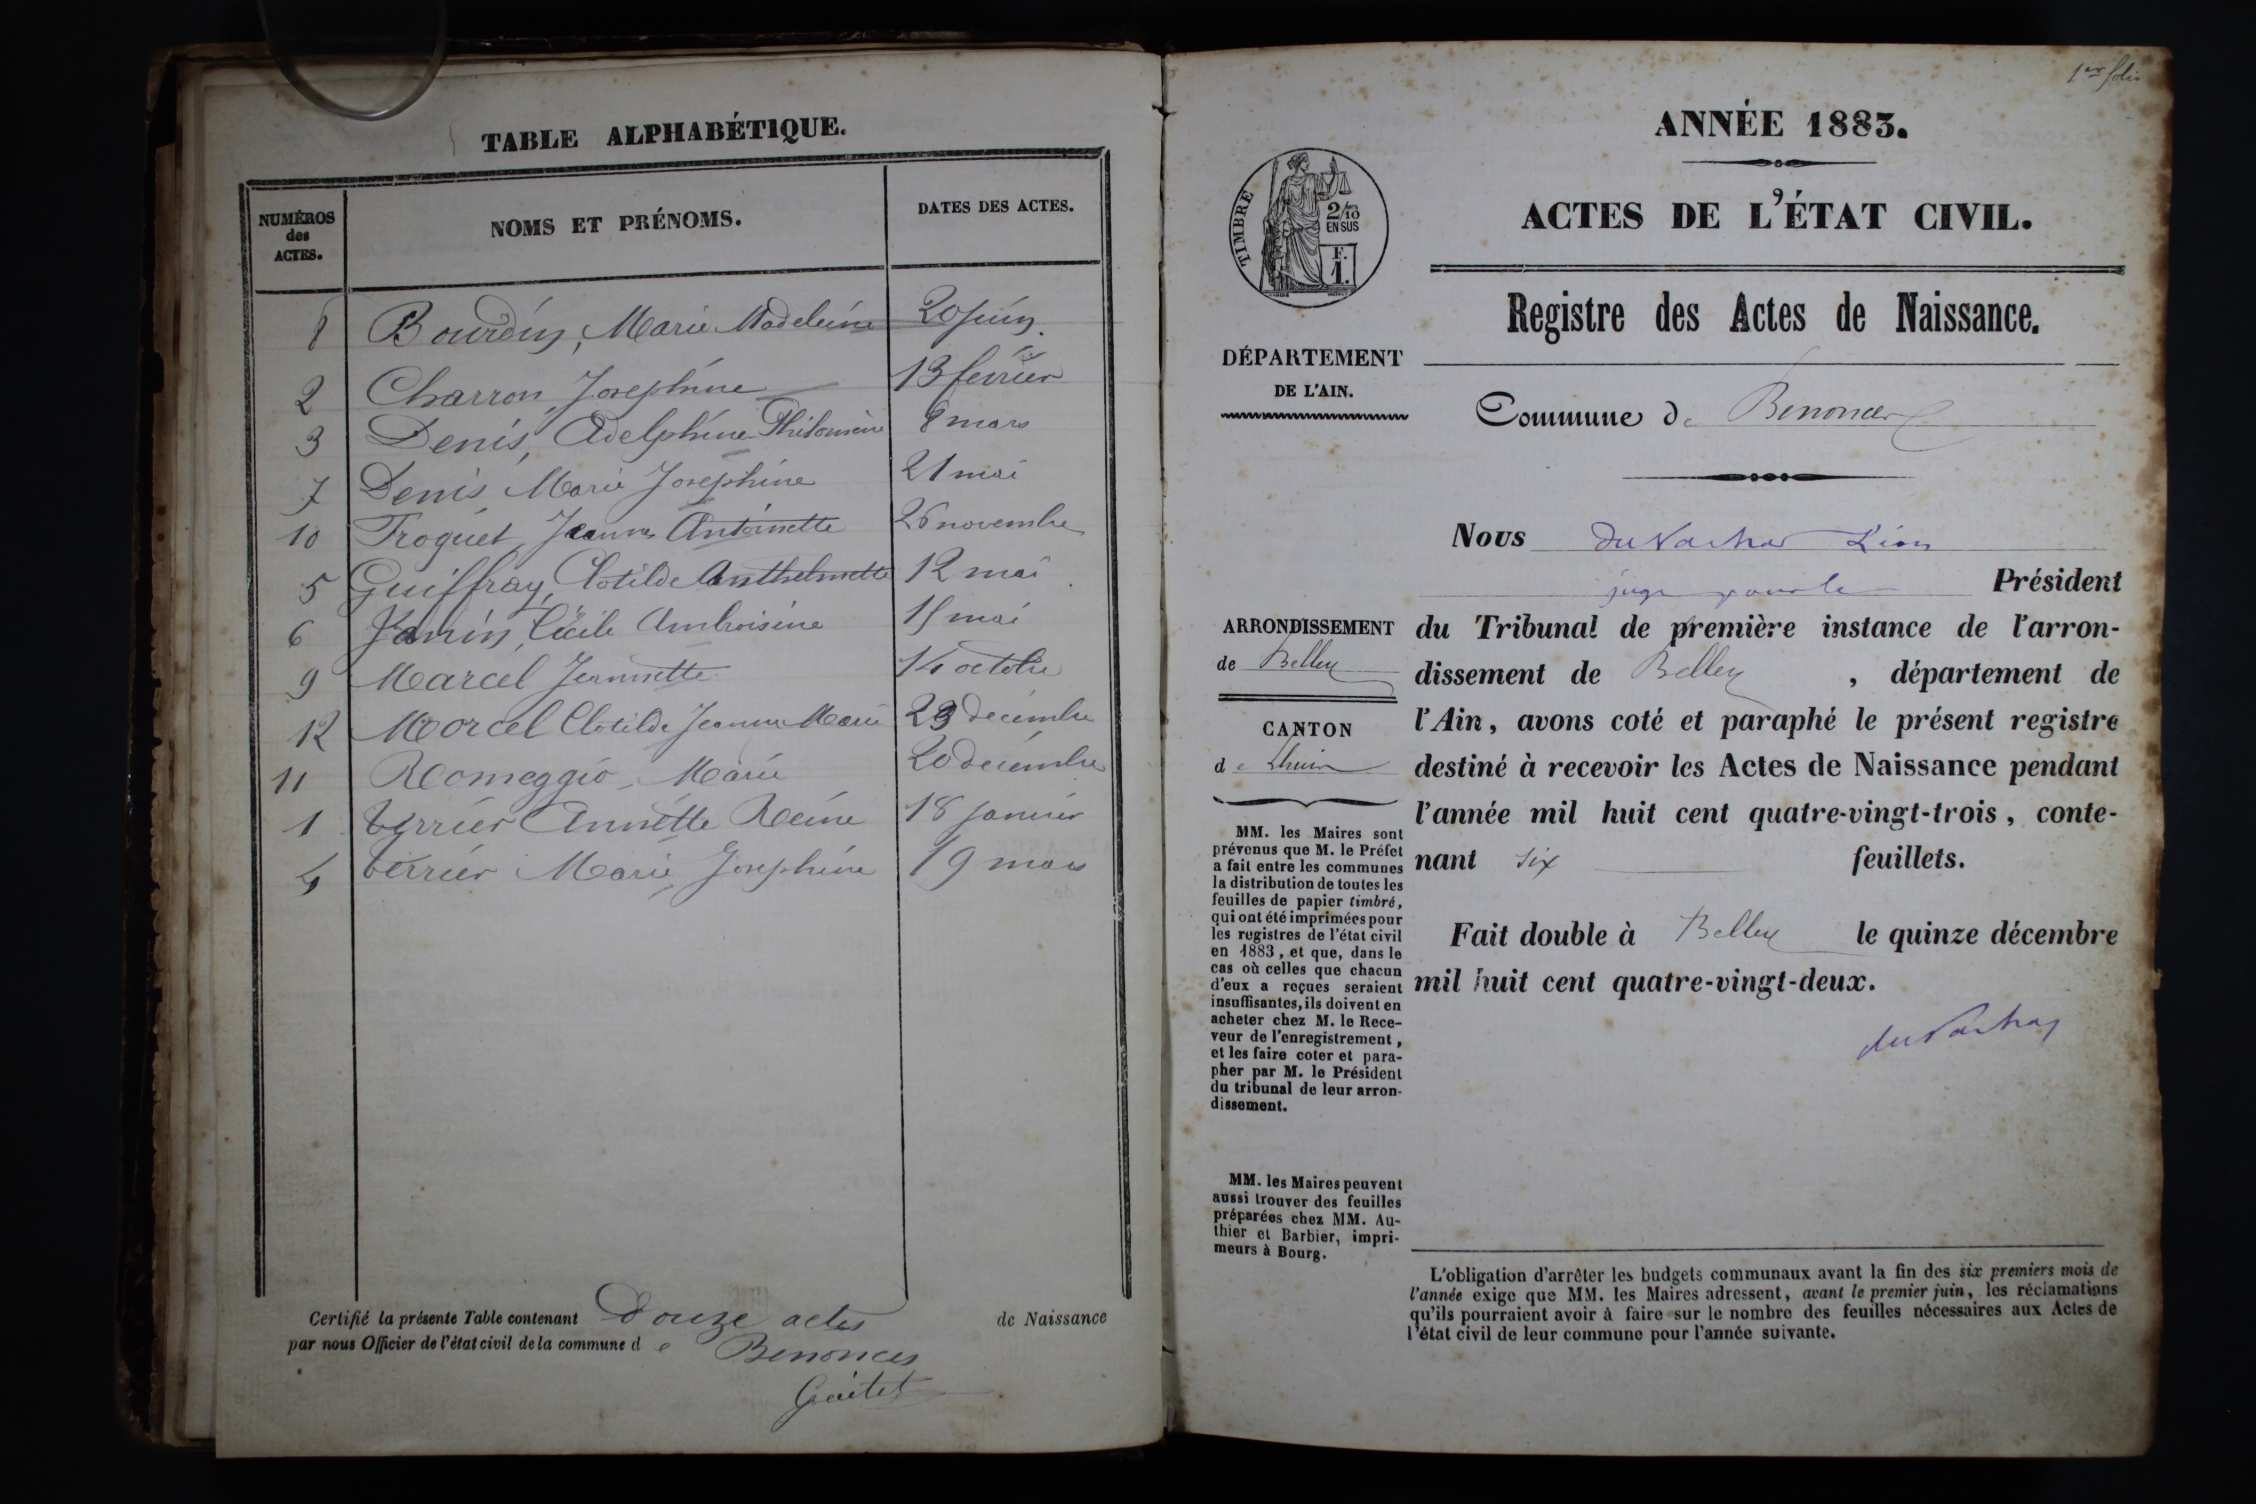 TABLE ALPHABÉTIQUE.
NUMÉROS des ACTES.
NOMS ET PRÉNOMS.
DATES DES ACTES.
8 Bourdin, Marie Madeleine 20 juin
2 Charron Josephine 13 février
3 Denis, Adelphine Philomène 8 mars
7 Denis Marie Josephine 21 mai
10 Troquet, Jeanne Antoinette 26 novembre
5 Guiffray, Clotilde Anthelmette 12 mai
6 Janin, Cécile Ambroisine 15 mai
9 Marcel Jeannette 14 octobre
12 Marcel Clotilde Jeanne Marie 23 décembre
11 Romeggio Marie 20 décembre
1 Verrier Annette Reine 18 janvier
4 Verrier Marie Josephine 19 mars
Certifié la présente Table contenant Douze actes de Naissance
par nous Officier de l'état civil de la commune de Benonces
1er folio
ANNÉE 1883.
ACTES DE L'ÉTAT CIVIL.
TIMBRE
2/10
EN SUS
F.
1.
Registre des Actes de Naissance.
DÉPARTEMENT
DE L'AIN.
Commune de Benonces
Nous du Vachat Léon
juge pour le Président
ARRONDISSEMENT
de Belley
CANTON
de Lhuis
du Tribunal de première instance de l'arron-
dissement de Belley, département de
l'Ain, avons coté et paraphé le présent registre
destiné à recevoir les Actes de Naissance pendant
l'année mil huit cent quatre-vingt-trois, conte-
nant six feuillets.
Fait double à Belley le quinze décembre
mil huit cent quatre-vingt-deux.
du Vachat
MM. les Maires sont
prévenus que M. le Préfet
a fait entre les communes
la distribution de toutes les
feuilles de papier timbré,
qui ont été imprimées pour
les registres de l'état civil
en 1883, et que, dans le
cas où celles que chacun
d'eux a reçues seraient
insuffisantes, ils doivent en
acheter chez M. le Rece-
veur de l'enregistrement,
et les faire coter et para-
pher par M. le Président
du tribunal de leur arron-
dissement.
MM. les Maires peuvent
aussi trouver des feuilles
préparées chez MM. Au-
thier et Barbier, impri-
meurs à Bourg.
L'obligation d'arrêter les budgets communaux avant la fin des six premiers mois de
l'année exige que MM. les Maires adressent, avant le premier juin, les réclamations
qu'ils pourraient avoir à faire sur le nombre des feuilles nécessaires aux Actes de
l'état civil de leur commune pour l'année suivante.